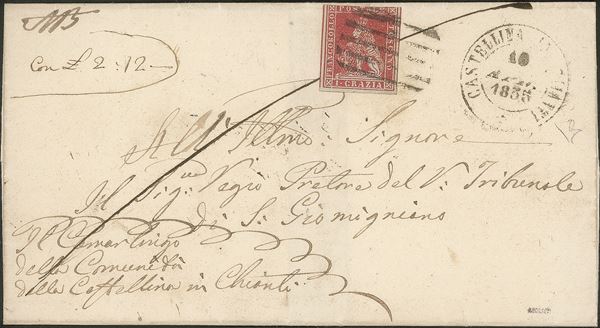 Con £ 2: 12 —
FRANCOBOLLO
POSTALE
TOSCANO
1 · GRAZIA
CASTELLINA IN CHIANTI
16
1855
All' Illmo: Signore
Il Sig: Vegio Pretore del V: Tribunale
di S: Gromigniano
Il Camarlingo
della Comunità
della Castellina in Chianti